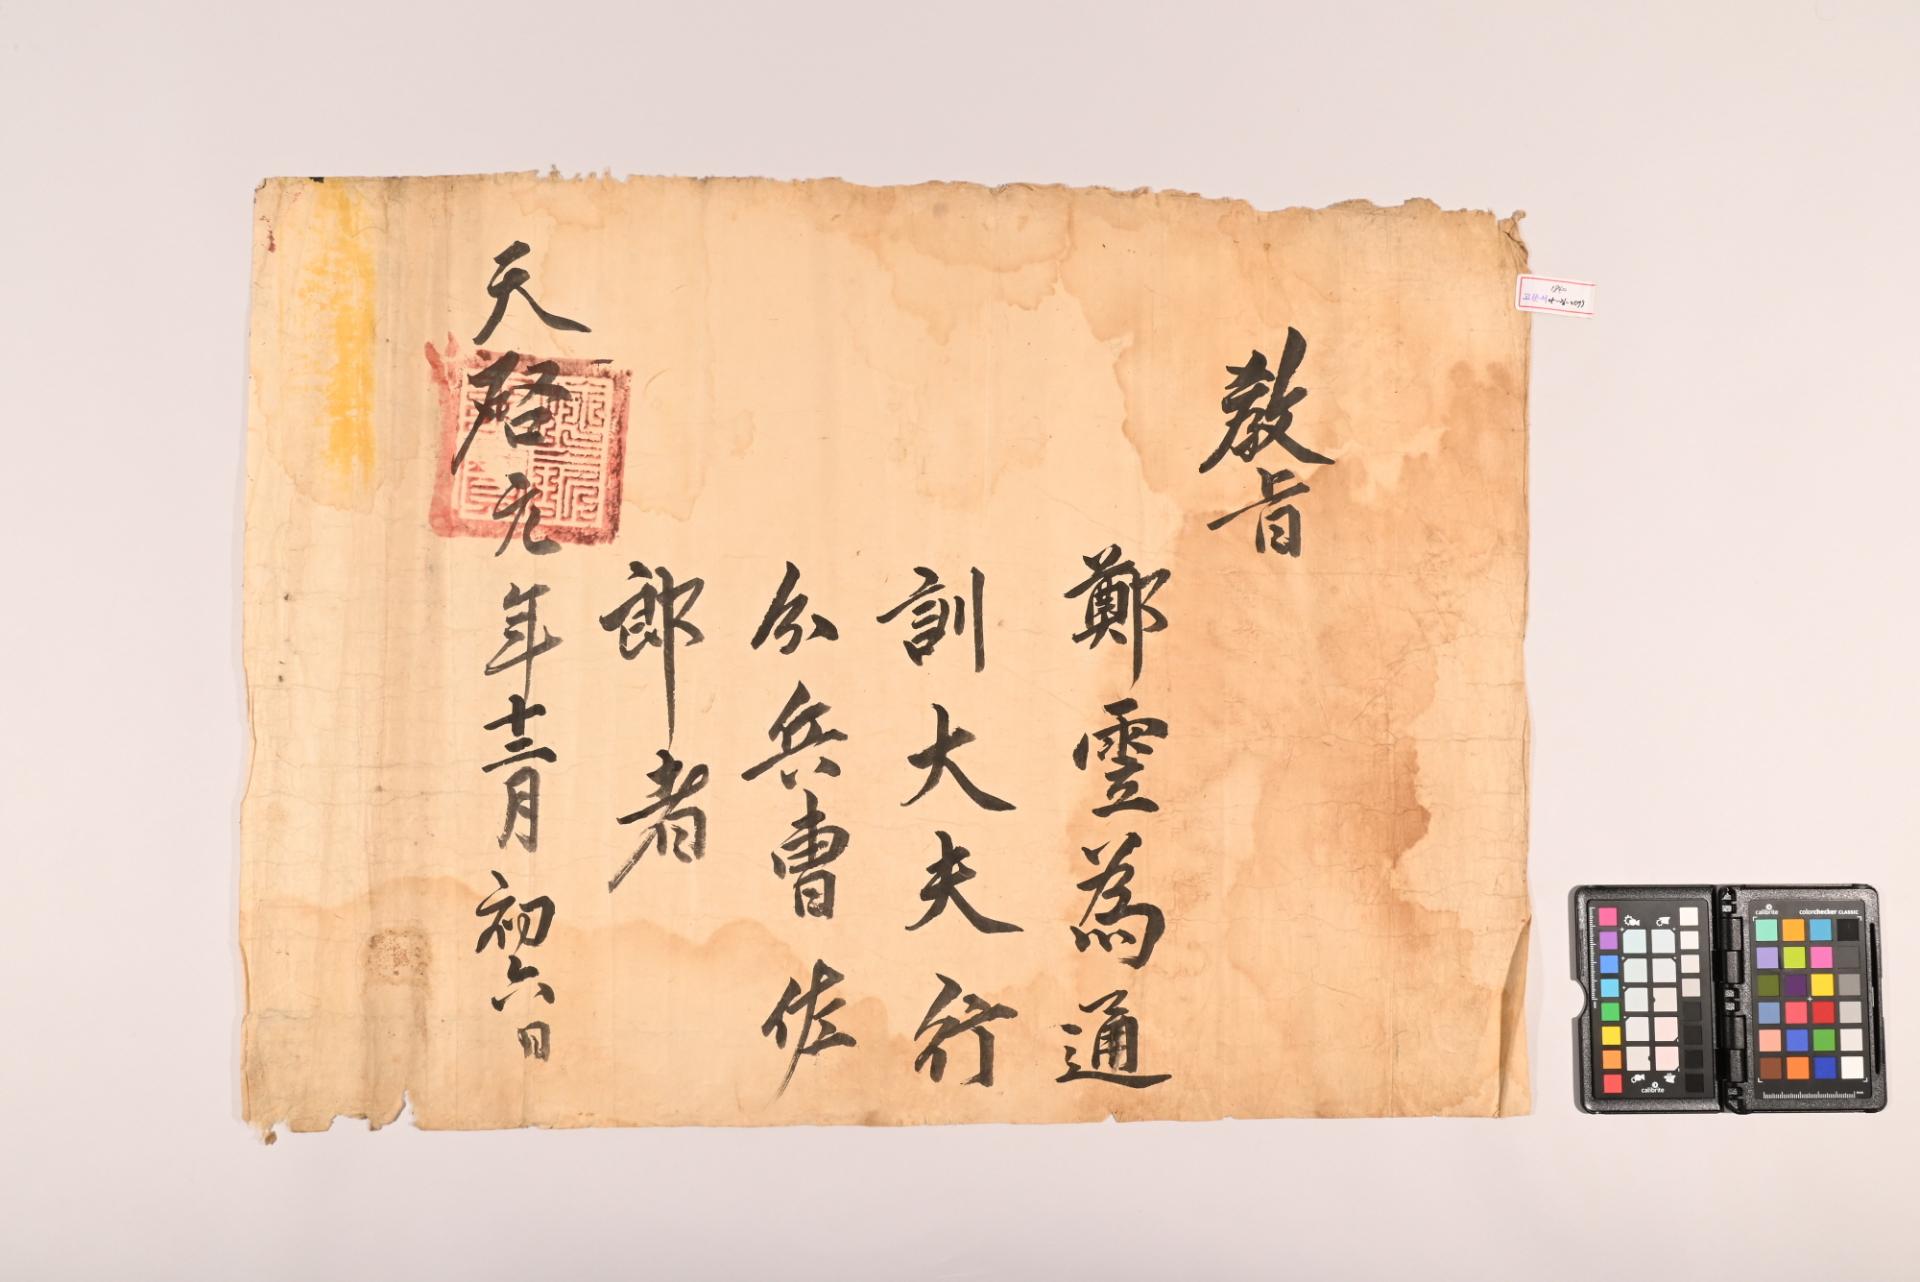 教旨
鄭霊為通
訓大夫行
分兵曹佐
郎者
天啓元年十二月初六日
calibrite
calibrite
colorchecker CLASSIC